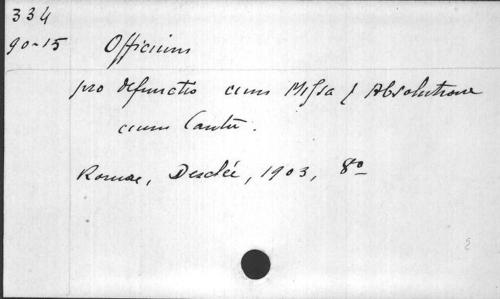 334
90-15 Officium
pro defunctis cum Missa & Absolutione
cum Cantu.
Romae, Desclée, 1903, 8o